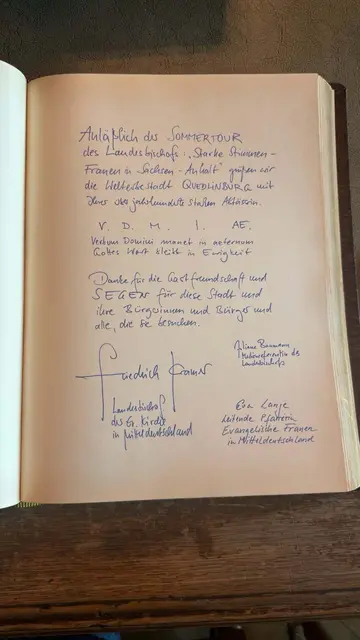 Anläßlich der SOMMERTOUR
des Landesbischofs: „Starke Stimmen -
Frauen in Sachsen-Anhalt" grüßen wir
die Welterbestadt QUEDLINBURG mit
ihrer starken Äbtissin.
V. D. M. I. AE.
Verbum Domini manet in aeternum
Gottes Wort bleibt in Ewigkeit
Danke für die Gastfreundschaft und
SEGEN für diese Stadt und
ihre Bürgerinnen und Bürger und
alle, die sie besuchen.
Friedrich Kramer
Landesbischof
der Ev. Kirche
in Mitteldeutschland
Baumann
Medienreferentin des
Landesbischofs
Eva Lange
Leitende Pfarrerin
Evangelische Frauen
in Mitteldeutschland